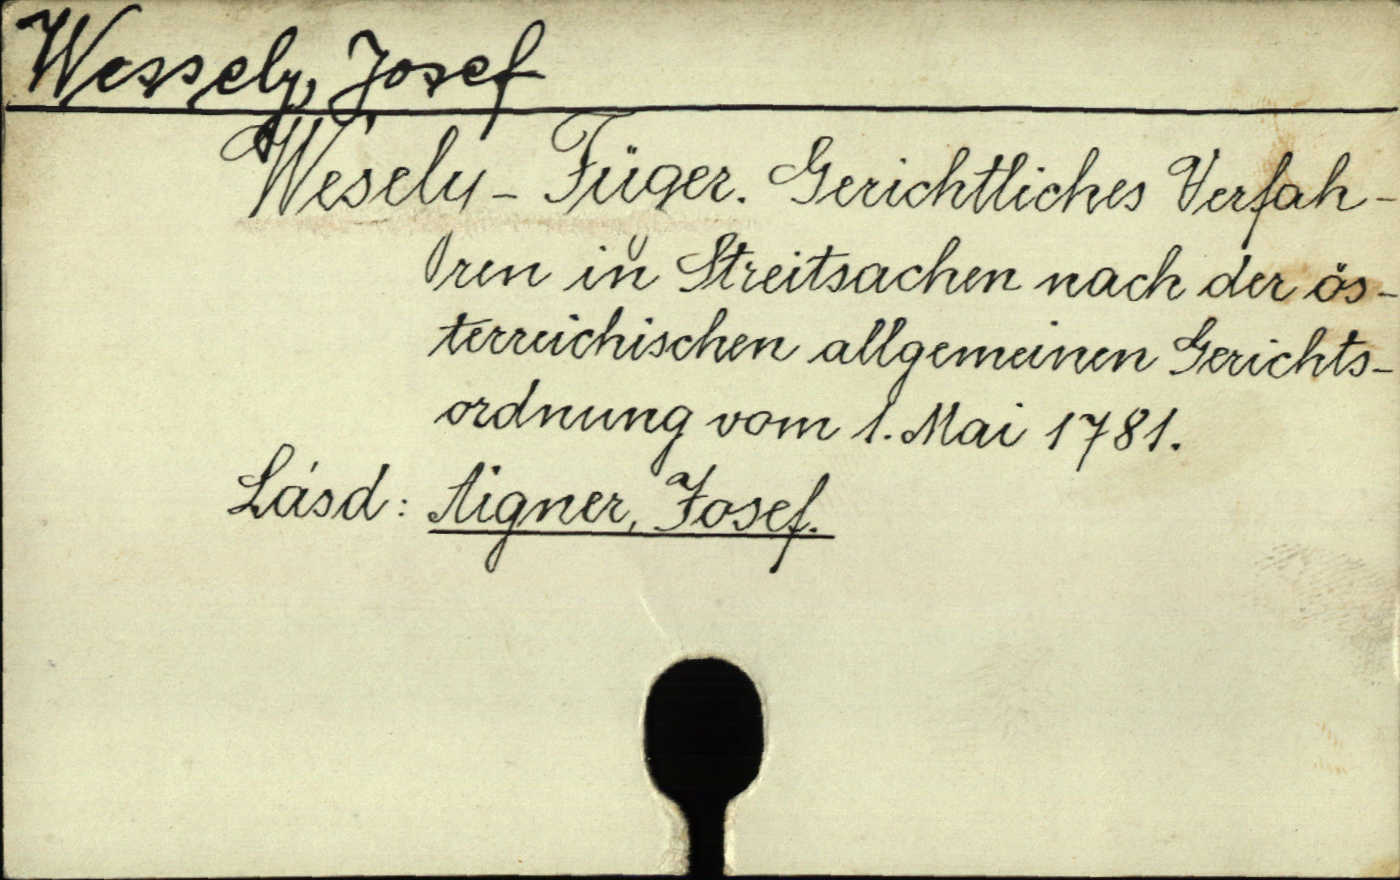 Wessely, Josef
Wesely - Füger. Gerichtliches Verfah-
ren in Streitsachen nach der ös-
terreichischen allgemeinen Gerichts-
ordnung vom 1. Mai 1781.
Lásd: Aigner, Josef.